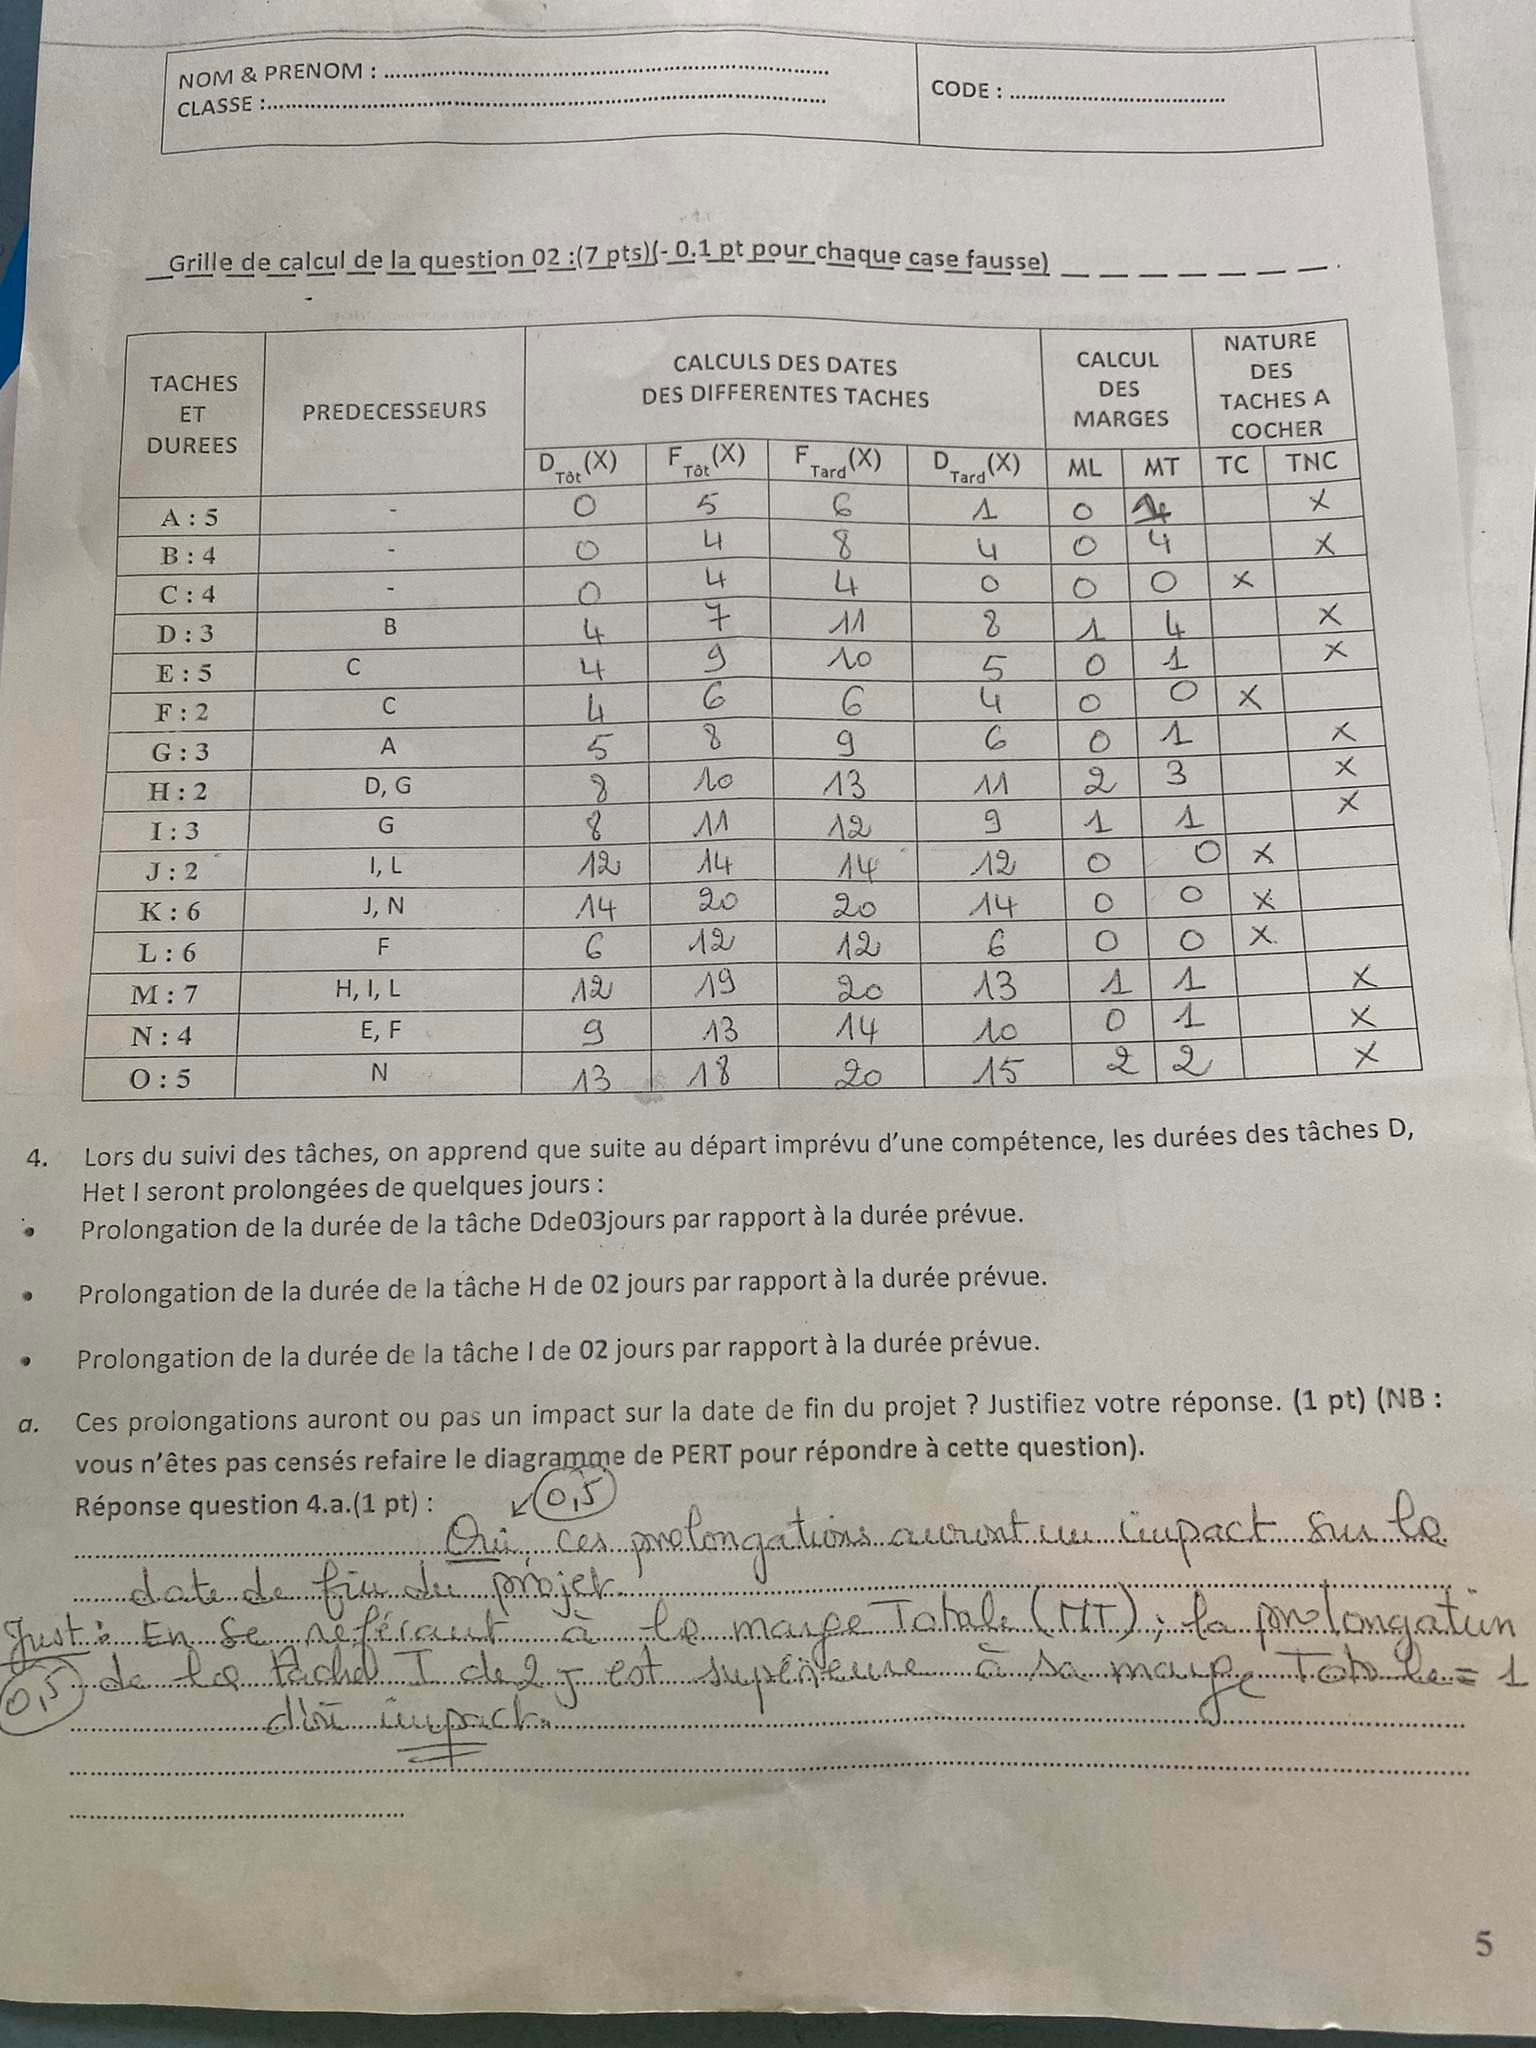 NOM & PRENOM : ..........................................................................
CLASSE :..........................................................................
CODE : ....................................
Grille de calcul de la question 02 :(7 pts)(- 0.1 pt pour chaque case fausse)
TACHES ET DUREES PREDECESSEURS CALCULS DES DATES DES DIFFERENTES TACHES CALCUL DES MARGES NATURE DES TACHES A COCHER
D Tôt (X) F Tôt (X) F Tard (X) D Tard (X) ML MT TC TNC
A : 5 - 0 5 6 1 0 1 X
B : 4 - 0 4 8 4 0 4 X
C : 4 - 0 4 4 0 0 0 X
D : 3 B 4 7 11 8 1 4 X
E : 5 C 4 9 10 5 0 1 X
F : 2 C 4 6 6 4 0 0 X
G : 3 A 5 8 9 6 0 1 X
H : 2 D, G 8 10 13 11 2 3 X
I : 3 G 8 11 12 9 1 1 X
J : 2 I, L 12 14 14 12 0 0 X
K : 6 J, N 14 20 20 14 0 0 X
L : 6 F 6 12 12 6 0 0 X
M : 7 H, I, L 12 19 20 13 1 1 X
N : 4 E, F 9 13 14 10 0 1 X
O : 5 N 13 18 20 15 2 2 X
4. Lors du suivi des tâches, on apprend que suite au départ imprévu d'une compétence, les durées des tâches D,
Het I seront prolongées de quelques jours :
• Prolongation de la durée de la tâche Dde03jours par rapport à la durée prévue.
• Prolongation de la durée de la tâche H de 02 jours par rapport à la durée prévue.
• Prolongation de la durée de la tâche I de 02 jours par rapport à la durée prévue.
a. Ces prolongations auront ou pas un impact sur la date de fin du projet ? Justifiez votre réponse. (1 pt) (NB :
vous n'êtes pas censés refaire le diagramme de PERT pour répondre à cette question).
Réponse question 4.a.(1 pt) : 0,5
Oui, ces prolongations auront un impact sur la
date de fin du projet.
Just : En se référant à la marge Totale (MT) ; la prolongation
0,5 de la tâche I de 2 j est supérieure à sa marge Totale = 1
d'où impact.
5